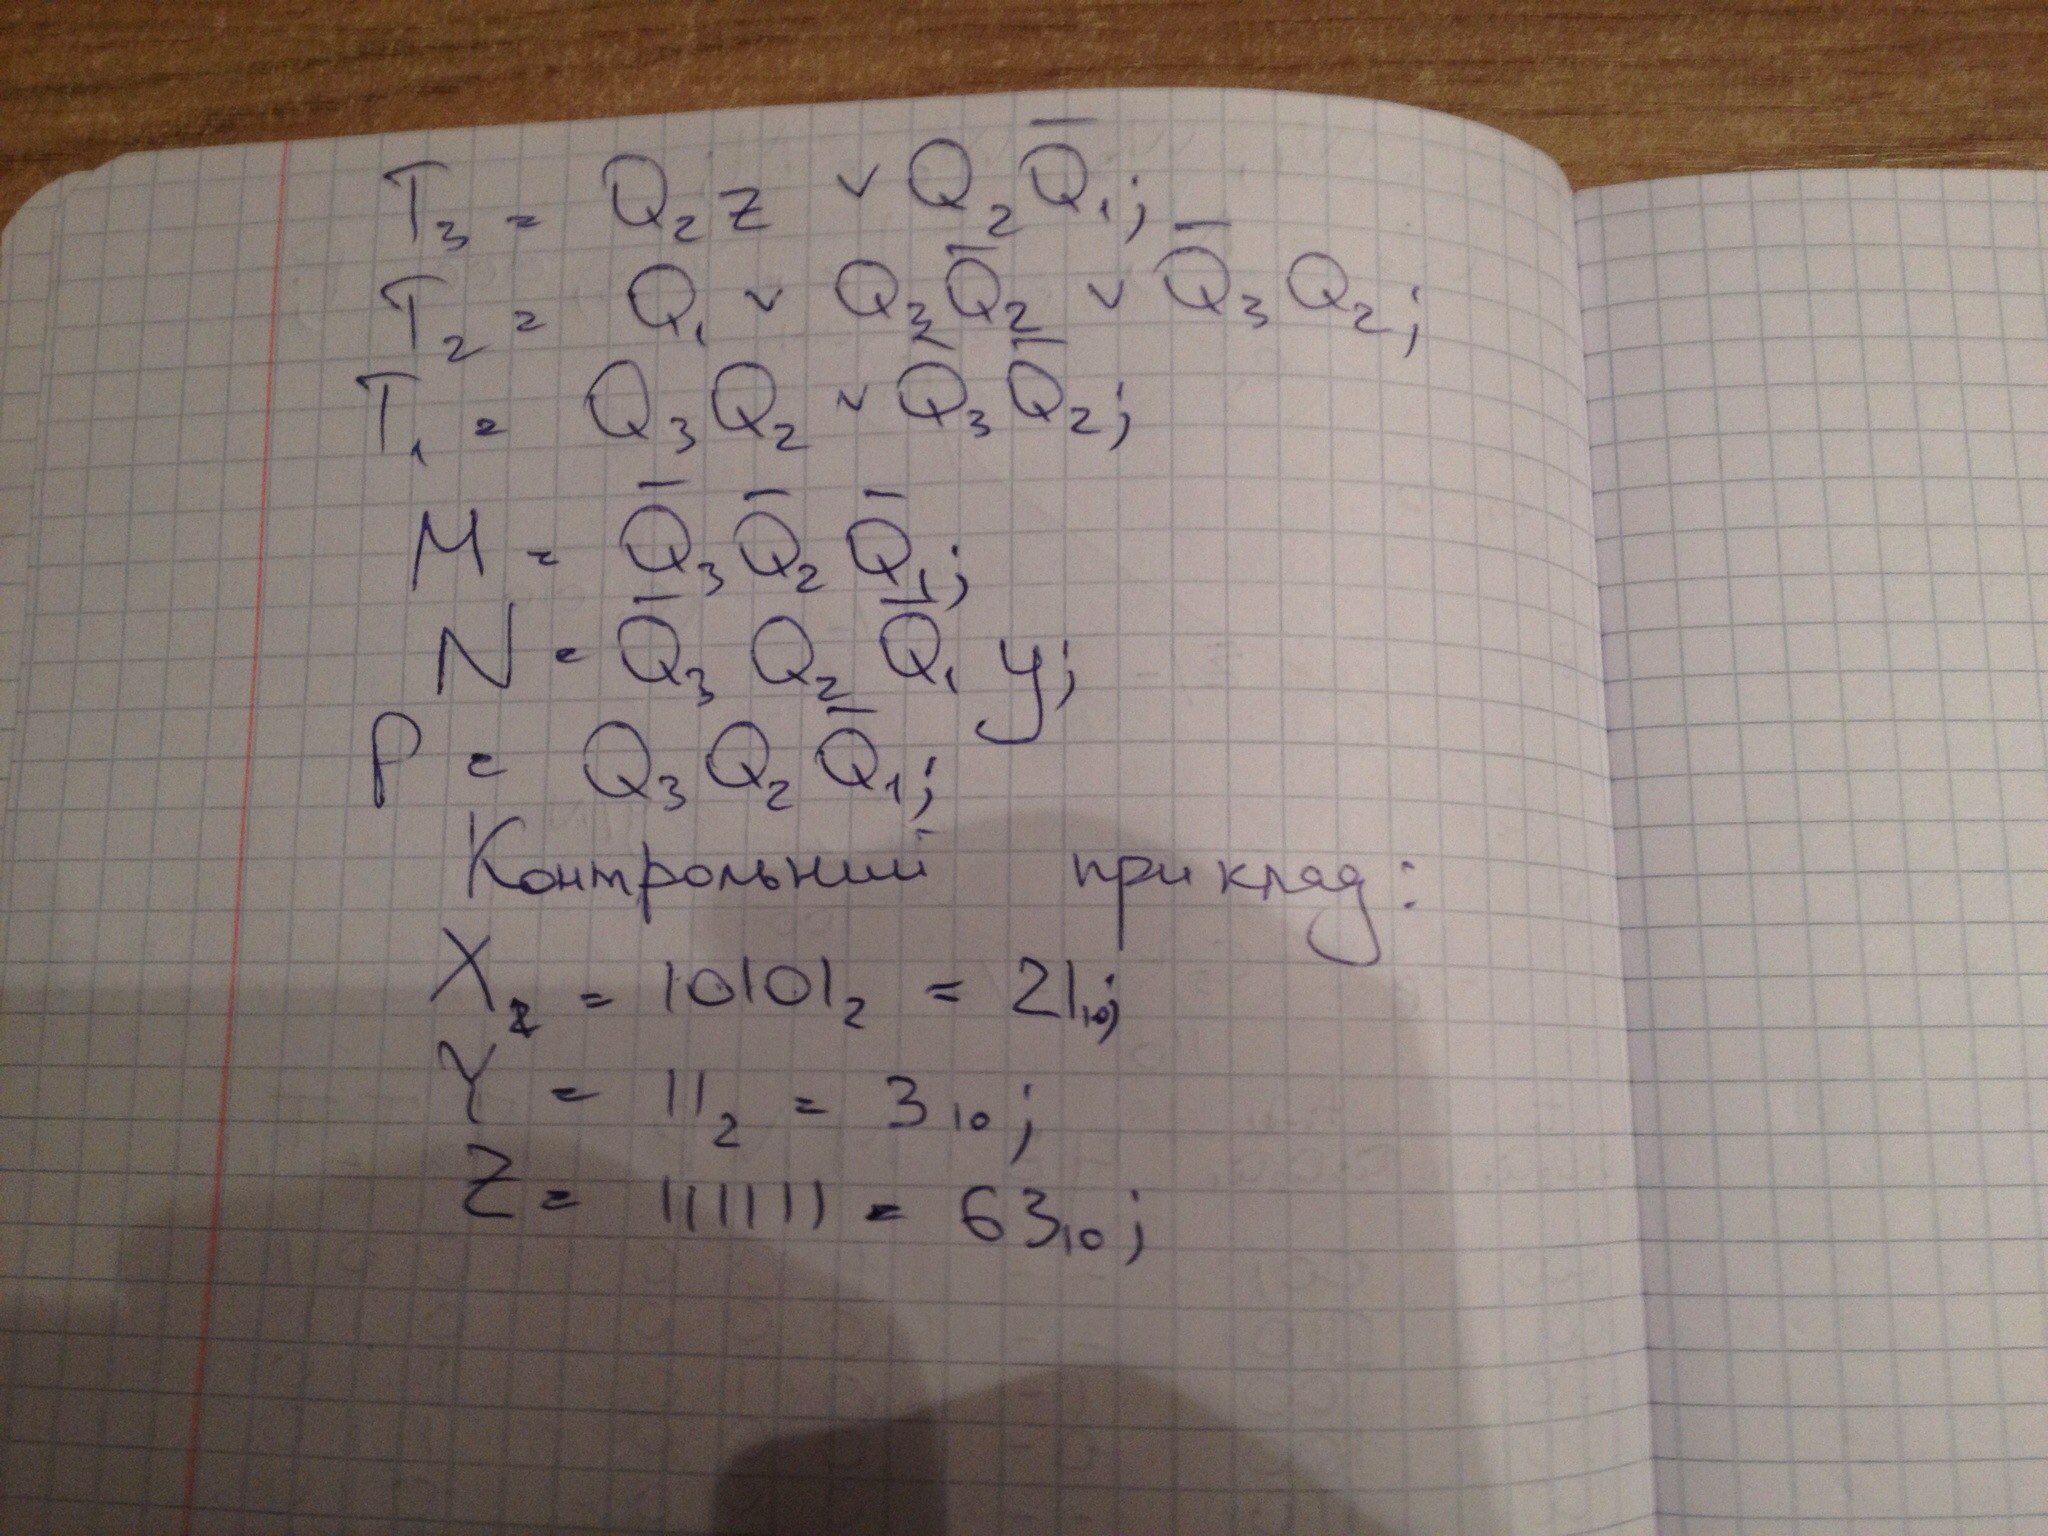 T₃ = Q₂z ∨ Q₂Q̅₁;
T₂ = Q₁ ∨ Q₃Q̅₂ ∨ Q̅₃Q₂;
T₁ = Q₃Q₂ ∨ Q̅₃Q̅₂;
M = Q̅₃Q̅₂Q̅₁;
N = Q̅₃Q₂Q̅₁y;
P = Q₃Q₂Q̅₁;
Контрольний приклад:
X₂ = 10101₂ = 21₁₀;
Y = 11₂ = 3₁₀;
Z = 111111 = 63₁₀;